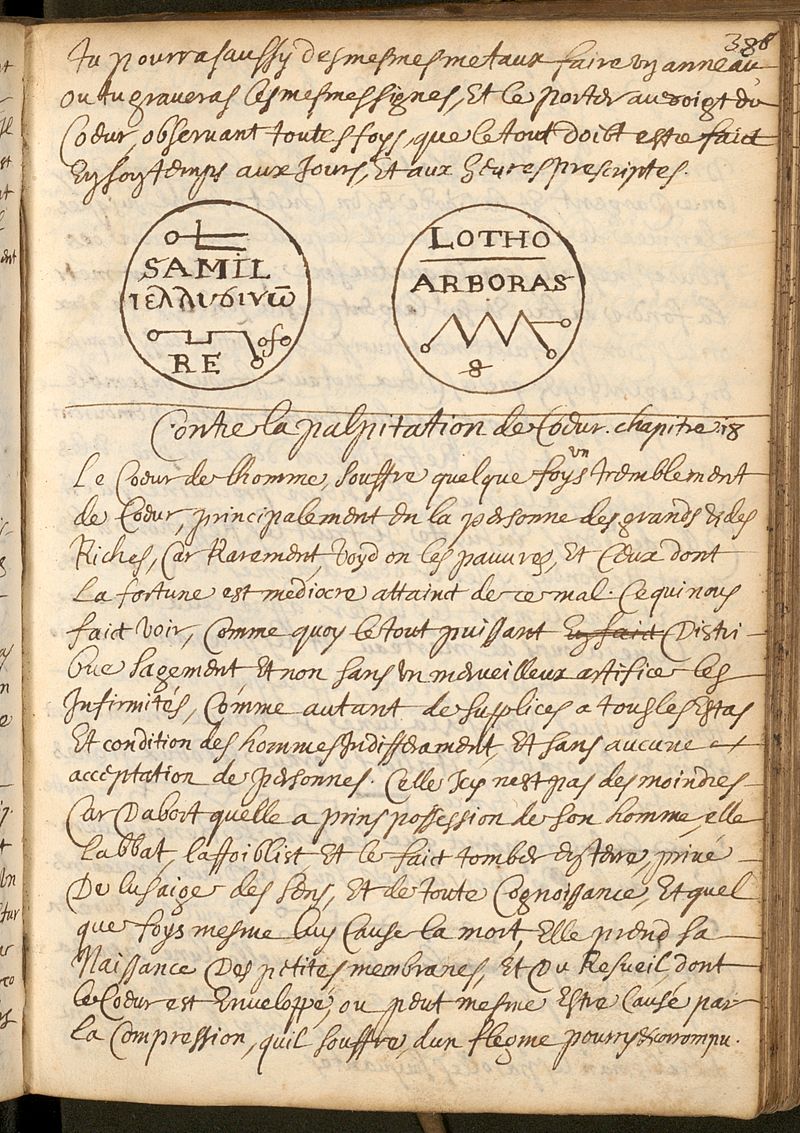 388
Tu pourras aussy des mesmes metaux faire un anneau
ou tu graveras les mesmes signes, Et le porter au doigt du
Coeur, observant toutesfoys, que le tout doibt estre faict
En son temps aux Jours, Et aux heures prescriptes.
SAMIL
ιελλισινω̅
RE
LOTHO
ARBORAS
8
Contre la palpitation de Coeur. chapitre 18
Le Coeur de lhomme, souffre quelque foys un tremblement
de Coeur, principalement en la personne des grands & des
Riches, Car Rarement, voyd on les pauvres, Et Ceux dont
La fortune est mediocre attainct de ce mal. Ce qui nous
faict voir, Comme quoy le tout puissant En faict Distri-
bue sagement Et non sans un merveilleux artifice les
Infirmités, Comme autant de supplices a tous les Estas
Et condition des hommes Indifferament, Et sans aucune
acceptation de personnes. Celle Icy nest pas des moindres
Car Dabort quelle a prins possession de son homme, elle
Labbat, laffoiblist Et le faict tomber en terre, privé
De lusaige des sens, Et de toute Cognoissance, Et quel
que foys mesme luy Cause la mort, Elle prend sa
Naissance Des petites membranes, Et Du Resueil, dont
le Coeur est Enveloppé, ou peut mesme Estre Causé par
La Compression, quil souffre, dun flegme pourry & corrompu.